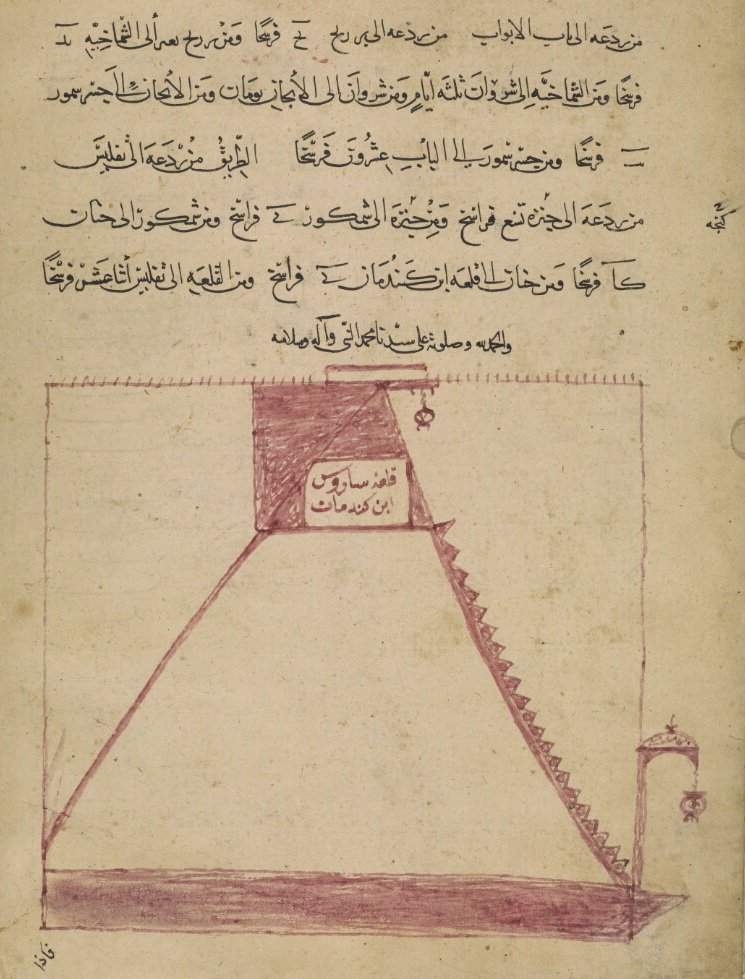 من بردعه الى باب الابواب من بردعه الى برزنج يح فرسخا ومن برزنج الى الشماخيه يد
فرسخا ومن الشماخيه الى شروان ثلثه ايام ومن شروان الى الابخان يومان ومن الابخان الى جسر سمور
فرسخا ومن جسر سمور الى الباب عشرون فرسخا الطريق من بردعه الى تفليس
من بردعه الى جنزه تسع فراسخ ومن جنزه الى شمكور ي فراسخ ومن شمكور الى خنان
كنجه
كا فرسخا ومن خنان الى قلعه ابن كندمان ي فراسخ ومن القلعه الى تفليس اثنا عشر فرسخا
والحمد لله وصلوته على سيدنا محمد النبي وآله وسلامه
قلعه ساروس
ابن كندمان
فاذا